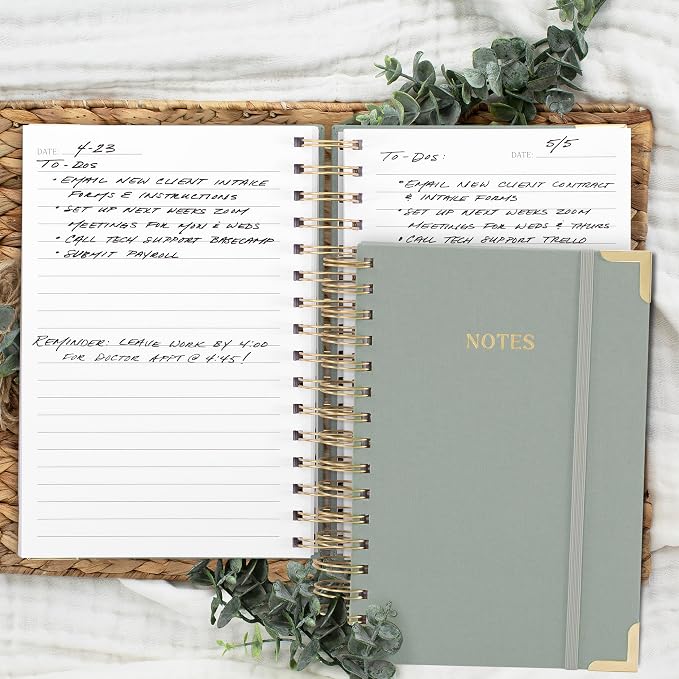 DATE: 4-23
TO-DOS
• EMAIL NEW CLIENT INTAKE
FORMS & INSTRUCTIONS
• SET UP NEXT WEEKS ZOOM
MEETINGS FOR MON & WEDS
• CALL TECH SUPPORT BASECAMP
• SUBMIT PAYROLL
REMINDER: LEAVE WORK BY 4:00
FOR DOCTOR APPT @ 4:45!
DATE: 5/5
TO-DOS:
• EMAIL NEW CLIENT CONTRACT
& INTAKE FORMS
• SET UP NEXT WEEKS ZOOM
MEETINGS FOR WEDS & THURS
• CALL TECH SUPPORT TRELLO
NOTES